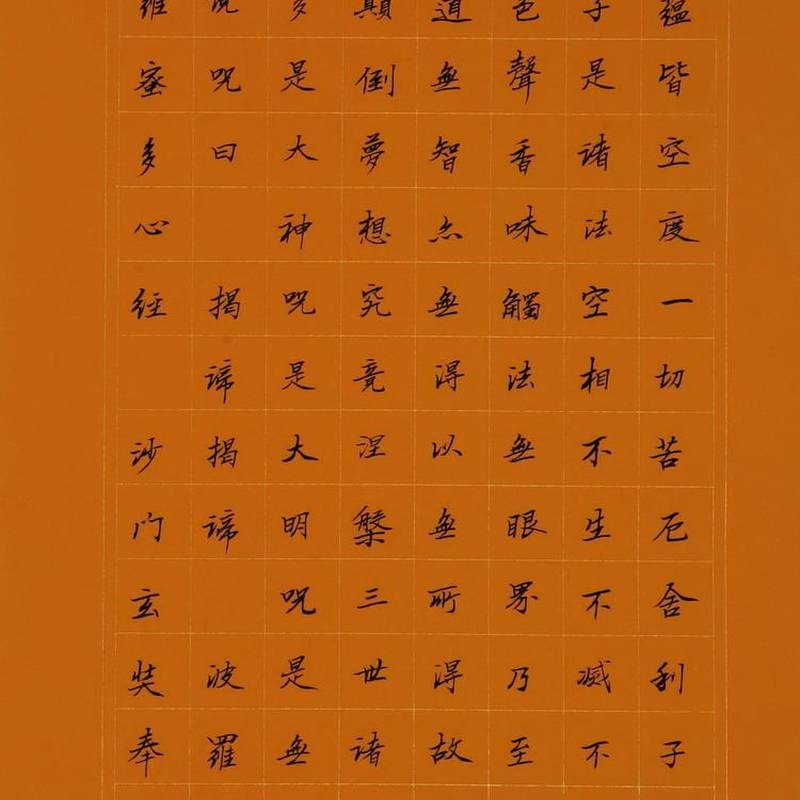 蘊皆空度一切苦厄舍利子
子是諸法空相不生不滅不
色聲香味觸法無眼界乃至
道無智亦無得以無所得故
顛倒夢想究竟涅槃三世諸
多是大神咒是大明咒是無
說咒曰 揭諦揭諦 波羅
羅蜜多心經 沙門玄奘奉